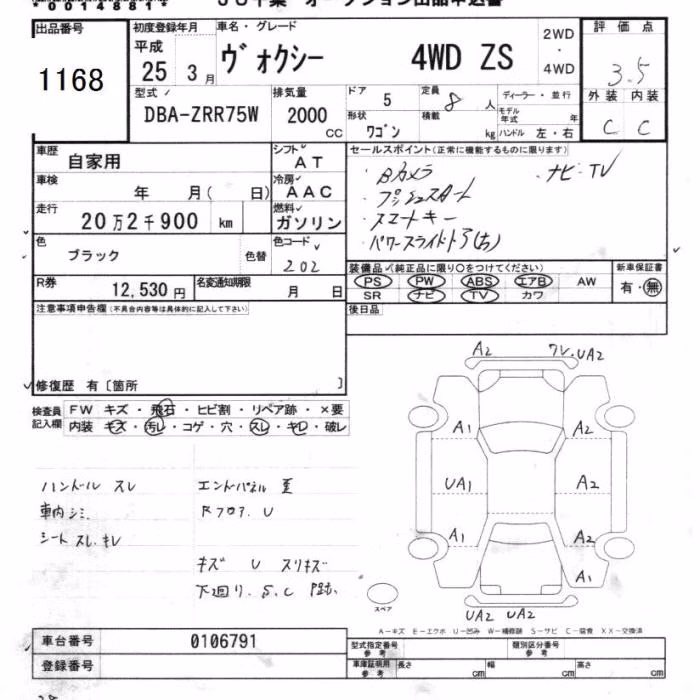 出品番号 初度登録年月 車名・グレード 評価点
1168 平成 25 3月 ヴォクシー 4WD ZS 2WD・4WD 3.5
外装 内装
C C
型式 排気量 ドア 5 定員 8 人 ディーラー・並行
DBA-ZRR75W 2000 CC 形状 ワゴン 積載 kg モデル年式 年
ハンドル 左・右
車歴 自家用 シフト AT セールスポイント(正常に機能するものに限ります)
車検 年 月( 日) 冷房 AAC
Bカメラ ナビ・TV
プッシュスタート
スマートキー
パワースライドドア(右)
走行 20万2千900 km 燃料 ガソリン
色 ブラック 色替 色コード 202
装備品(純正品に限り○をつけてください) 新車保証書
PS PW ABS エアB AW 有・無
SR ナビ TV カワ
R券 12,530円 名変通知期限 月 日
注意事項申告欄(不具合内容等は具体的に記入して下さい) 後日品
修復歴 有〔箇所 〕
検査員記入欄 FW キズ・飛石・ヒビ割・リペア跡・×要
内装 キズ・汚レ・コゲ・穴・スレ・キレ・破レ
ハンドル スレ
車内シミ
シート スレ.キレ
エンドパネル 歪
Rフロア.U
キズ U スリキズ
下廻り.S.C
A2 ワレ.UA2
A1 A2
UA1 A2
A1 A2
A1
UA2 UA2
スペア
A-キズ E-エクボ U-凹み W-補修跡 S-サビ C-腐食 XX-交換済
車台番号 0106791
登録番号
型式指定番号 参考 類別区分番号 参考
車庫証明用 参考 長さ cm 幅 cm 高さ cm